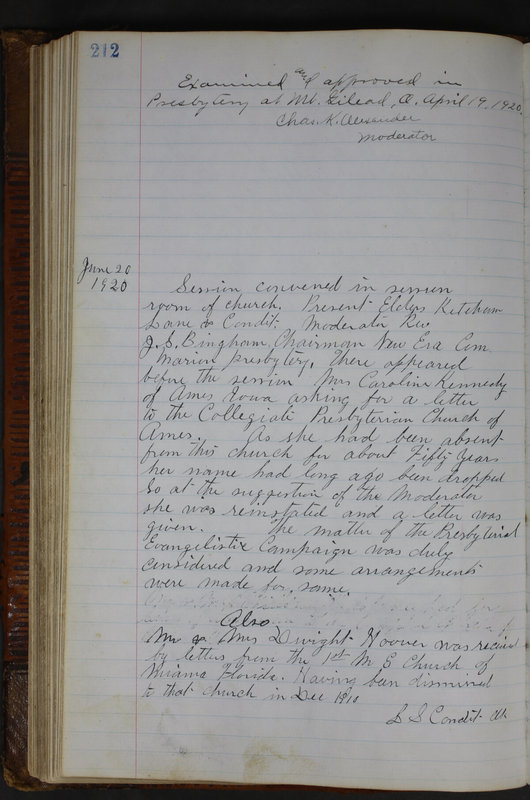 212
Examined and approved in
Presbytery at Mt. Gilead, O. April 19, 1920.
Chas. K. Alexander
Moderator
June 20
1920
Session convened in session
room of church. Present Elders Ketcham
Lane & Condit. Moderator Rev
J. S. Bingham, Chairman New Era Com
Marion Presbytery. There appeared
before the session Mrs Caroline Kennedy
of Ames Iowa asking for a letter
to the Collegiate Presbyterian Church of
Ames. As she had been absent
from this church for about Fifty Years
her name had long ago been dropped
So at the suggestion of the Moderator
she was reinstated and a letter was
given. The matter of the Presbyterial
Evangelistic Campaign was duly
considered and some arrangements
were made for same.
Also
Mr & Mrs Dwight Hoover was received
by letters from the 1st M E Church of
Miama Florida. Having been dismissed
to that church in Dec 1910
S S Condit Clk